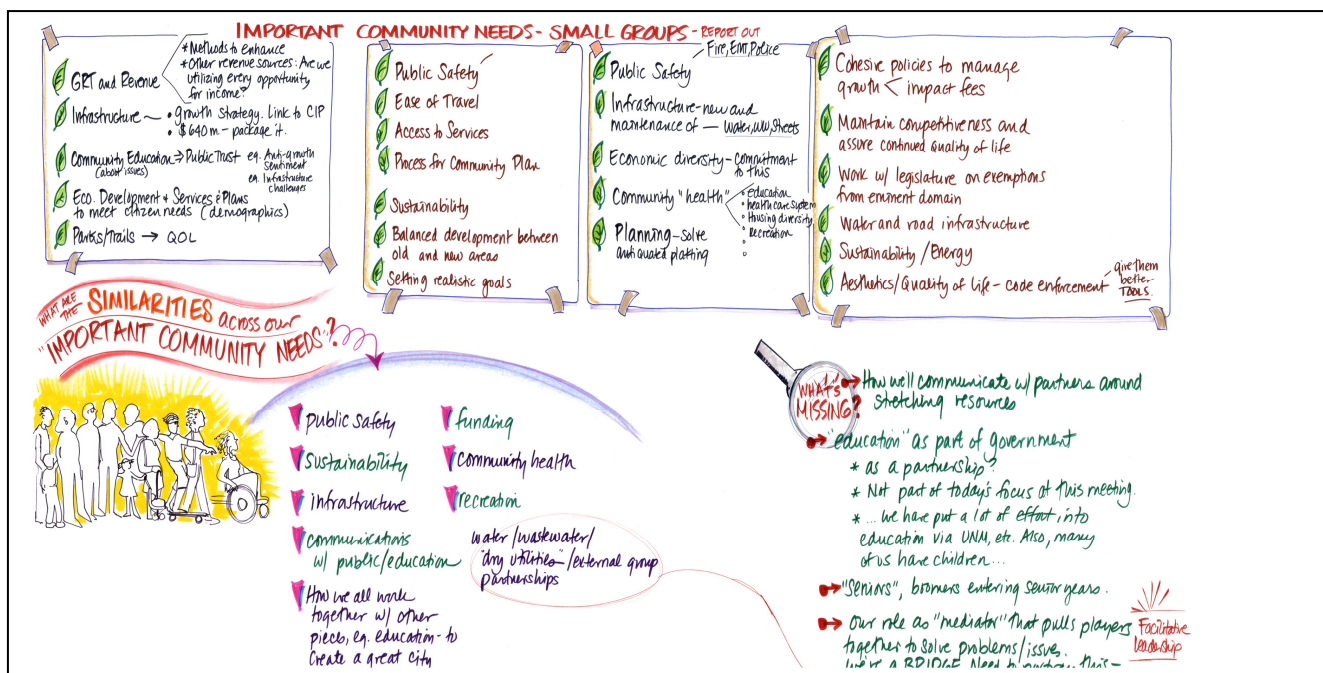 IMPORTANT COMMUNITY NEEDS - SMALL GROUPS - REPORT OUT
GRT and Revenue
* Methods to enhance
* Other revenue sources: Are we
utilizing every opportunity
for income?
Infrastructure
• growth strategy. Link to CIP
• $640m - package it.
Community Education ⇒ Public Trust
(about issues)
eg. Anti-growth
sentiment
eg. Infrastructure
challenges
Eco. Development & Services & Plans
to meet citizen needs (demographics)
Parks/Trails → QOL
Public Safety
Ease of Travel
Access to Services
Process for Community Plan
Sustainability
Balanced development between
old and new areas
Setting realistic goals
Fire, EMT, Police
Public Safety
Infrastructure - new and
maintenance of — Water, WW, Streets
Economic diversity - commitment
to this
Community "health"
• education
• health care system
• Housing diversity
• recreation
Planning - solve
antiquated platting
Cohesive policies to manage
growth < impact fees
Maintain competitiveness and
assure continued quality of life
Work w/ legislature on exemptions
from eminent domain
Water and road infrastructure
Sustainability / Energy
Aesthetics/Quality of life - code enforcement
give them
better
TOOLS.
WHAT ARE
THE SIMILARITIES across our
"IMPORTANT COMMUNITY NEEDS"?
public safety
sustainability
infrastructure
communications
w/ public/education
How we all work
together w/ other
pieces, eg. education - to
create a great city
funding
community health
recreation
water/wastewater/
"dry utilities"/external group
partnerships
WHAT'S
MISSING?
How we'll communicate w/ partners around
stretching resources
"education" as part of government
* as a partnership?
* Not part of today's focus at this meeting.
* ... we have put a lot of effort into
education via UNM, etc. Also, many
of us have children...
"Seniors", boomers entering senior years.
Our role as "mediator" that pulls players
together to solve problems/issues.
We're a BRIDGE. Need to this -
Facilitative
leadership